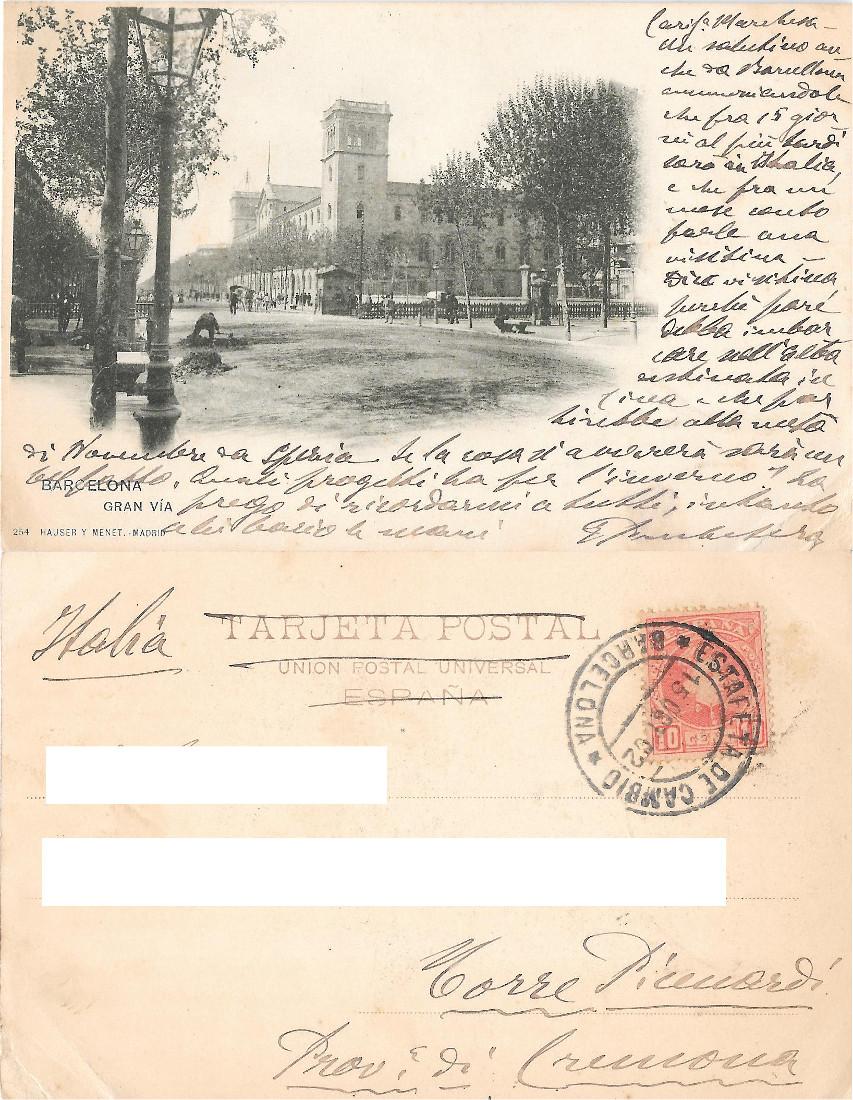 Carisª Marchesa –
Un salutino an
che da Barcellona
annunciandole
che fra 15 gior
ni al più tardi
sarò in Italia,
e che fra un
mese conto
farle una
visitina –
Dico visitina
perchè pare
debba imbar
care nell'alba
destinata in
Cina e che par
tirebbe alla metà
di Novembre da Spezia Se la cosa si avvererà sarà un
Quali progetti ha per l'inverno? La
prego di ricordarmi a tutti, intanto
le bacio le mani
BARCELONA
GRAN VÍA
254 HAUSER Y MENET.-MADRID
Italia
TARJETA POSTAL
UNION POSTAL UNIVERSAL
ESPAÑA
ESTAFETA DE CAMBIO
BARCELONA
10
Torre Picenardi
Prov.ª di Cremona